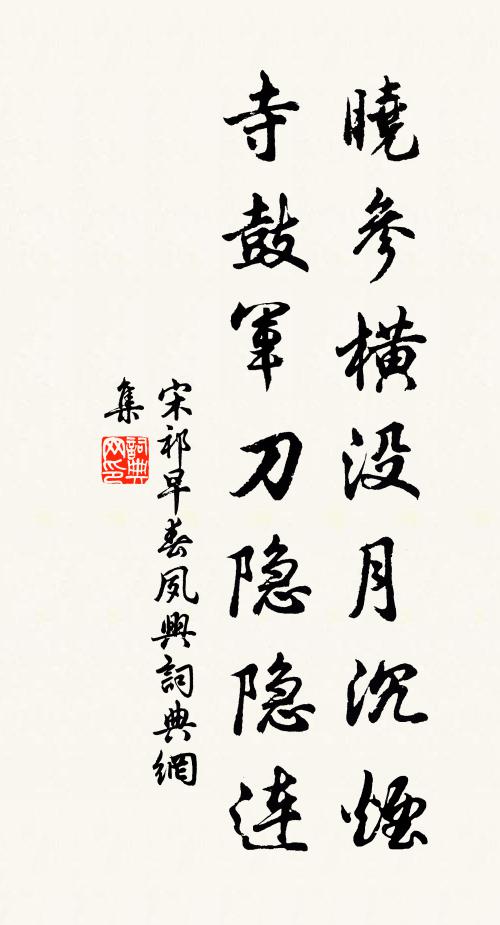 曉參橫没月沉煙
寺鼓軍刀隐隐連
宋祁早春夙興詞典網
集
詞典网印